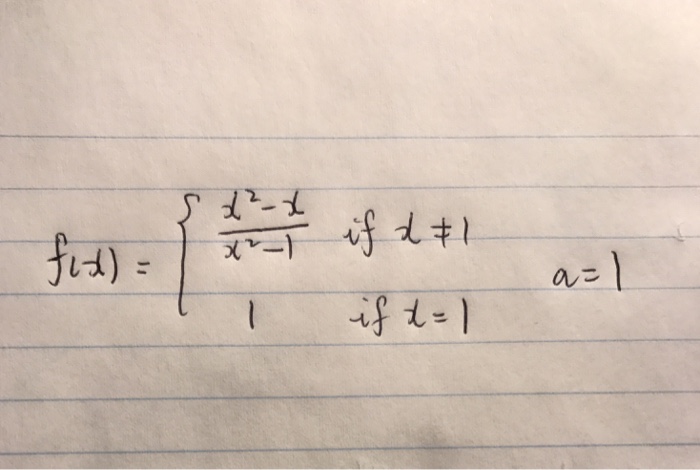 f(x) = { x²-x / x²-1 if x ≠ 1
1 if x = 1 a = 1